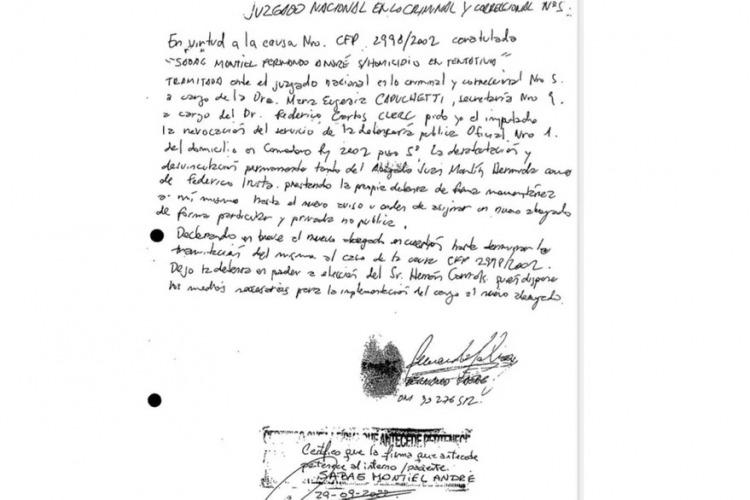 JUZGADO NACIONAL EN LO CRIMINAL Y CORRECCIONAL Nº5.
En virtud a la causa Nro. CFP 2998/2002 caratulada
"SABAG MONTIEL FERNANDO ANDRÉ S/HOMICIDIO EN TENTATIVA"
TRAMITADA ante el juzgado nacional en lo criminal y correccional Nro 5.
a cargo de la Dra. Maria Eugenia CAPUCHETTI, secretaría Nro 9.
a cargo del Dr. Federico Carlos CLERC pido yo el imputado
la revocación del servicio de la defensoría pública Oficial Nro 1.
del domicilio en Comodoro Py 2002 piso 5º. La desvinculación permanente tanto del Abogado Juan Martín Hermida como
de Federico prestando la propia defensa de forma momentánea
a mi mismo hasta el nuevo aviso u orden de asignar un nuevo abogado
de forma particular y privada no pública.
Declarando en breve el nuevo abogado en cuestión hasta
tramitación del mismo al caso de la causa CFP 2998/2002.
Dejo la defensa en poder a elección del Sr. Hernán quien dispone
los medios necesarios para la implementación del cargo al nuevo abogado.
FERNANDO SABAG
QUE ANTECEDE PERTENECE
Certifico que la firma que antecede
pertenece al interno/paciente
SABAG MONTIEL ANDRÉ
29-09-2022